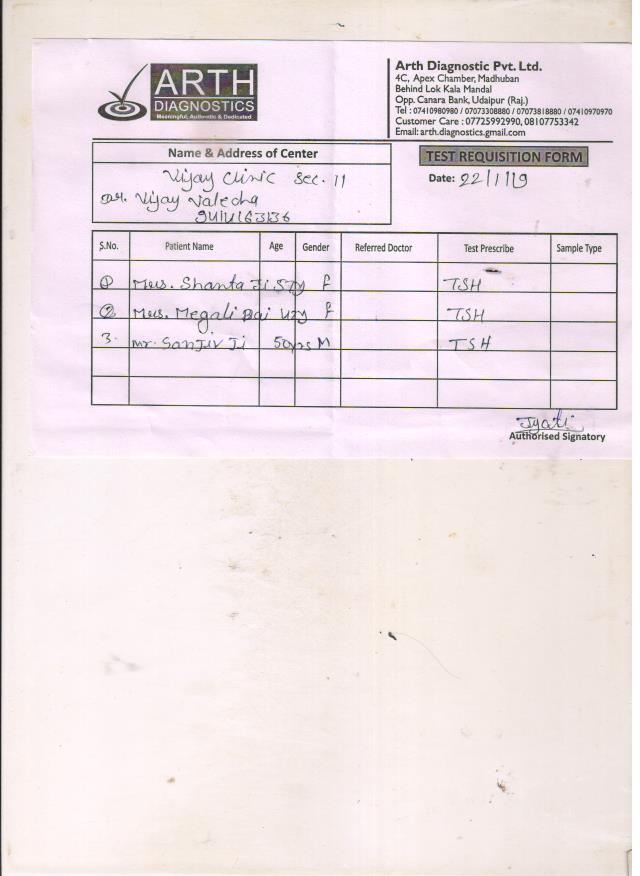 ARTH
DIAGNOSTICS
Meaningful, Authentic & Dedicated
Arth Diagnostic Pvt. Ltd.
4C, Apex Chamber, Madhuban
Behind Lok Kala Mandal
Opp. Canara Bank, Udaipur (Raj.)
Tel : 07410980980 / 07073308880 / 07073818880 / 07410970970
Customer Care : 07725992990, 08107753342
Email: arth.diagnostics.gmail.com
Name & Address of Center
Vijay Clinic Sec. 11
Dr. Vijay Valecha
TEST REQUISITION FORM
Date: 22/1/19
S.No. Patient Name Age Gender Referred Doctor Test Prescribe Sample Type
① Mrs. Shanta Ji 57y F TSH
② Mrs. Megali Bai 42y F TSH
3. Mr. Sanjiv Ji 50yrs M TSH
Jyoti
Authorised Signatory